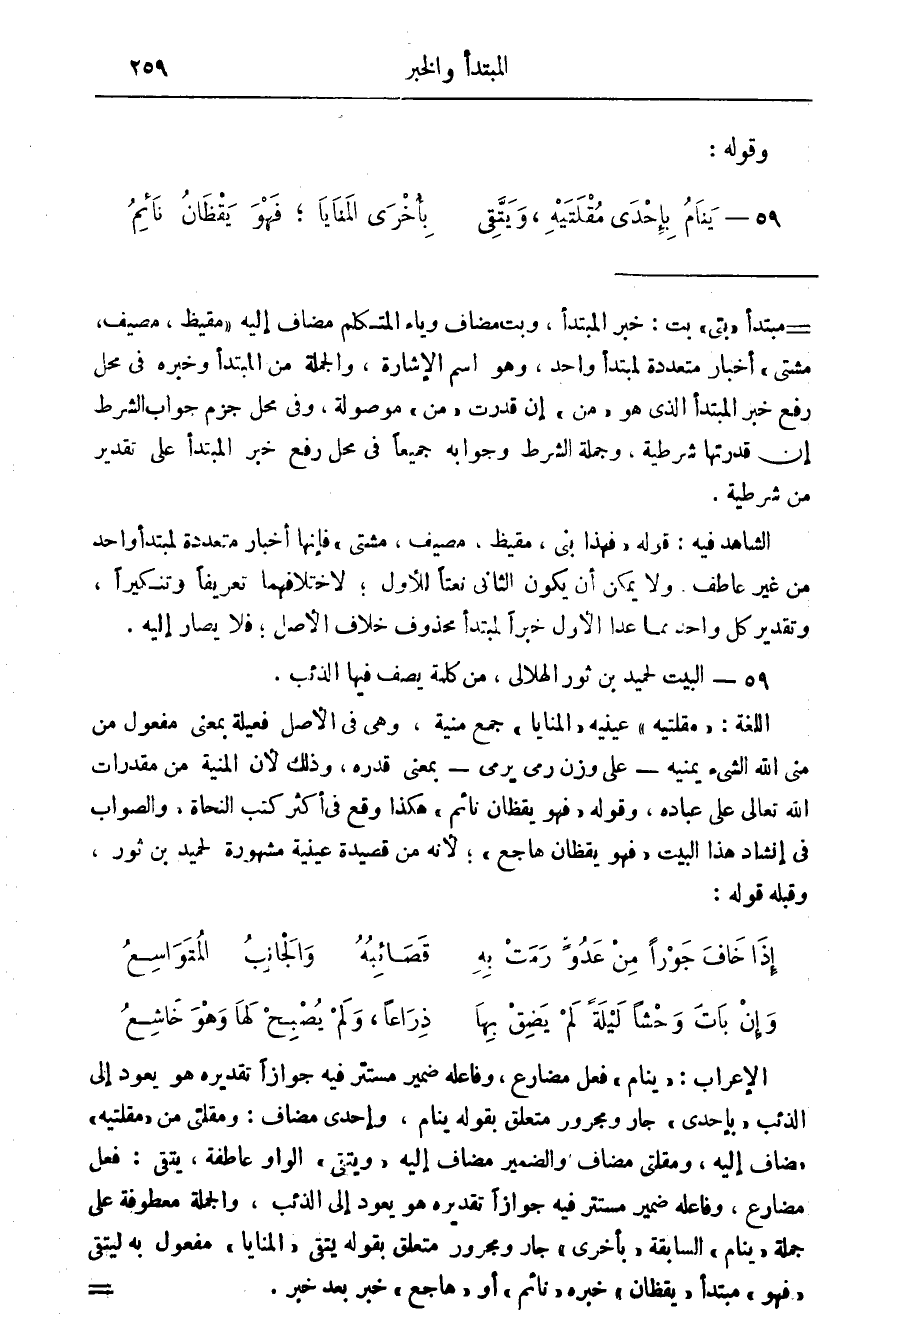 المبتدأ والخبر ٢٥٩
وقوله :
٥٩ — يَنَامُ بِإِحْدَى مُقْلَتَيْهِ ، وَيَتَّقِي بِأُخْرَى المَنَايَا ؛ فَهْوَ يَقْظَانُ نَائِمُ
= مبتدأ « بتى » بت : خبر المبتدأ ، وبت مضاف وياء المتكلم مضاف إليه « مقيظ ، مصيف ،
مشتى » أخبار متعددة لمبتدأ واحد ، وهو اسم الإشارة ، والجملة من المبتدأ وخبره فى محل
رفع خبر المبتدأ الذى هو « من » إن قدرت « من » موصولة ، وفى محل جزم جواب الشرط
إن قدرتها شرطية ، وجملة الشرط وجوابه جميعاً فى محل رفع خبر المبتدأ على تقدير
من شرطية .
الشاهد فيه : قوله « فهذا بتى ، مقيظ ، مصيف ، مشتى » فإنها أخبار متعددة لمبتدأ واحد
من غير عاطف . ولا يمكن أن يكون الثانى نعتاً للأول ؛ لاختلافهما تعريفاً وتنكيراً ،
وتقدير كل واحد مما عدا الأول خبراً لمبتدأ محذوف خلاف الأصل ؛ فلا يصار إليه .
٥٩ — البيت لحميد بن ثور الهلالى ، من كلمة يصف فيها الذئب .
اللغة : « مقلتيه » عينيه « المنايا » جمع منية ، وهى فى الأصل فعيلة بمعنى مفعول من
منى الله الشىء يمنيه — على وزن رمى يرمى — بمعنى قدره ، وذلك لأن المنية من مقدرات
الله تعالى على عباده ، وقوله « فهو يقظان نائم » هكذا وقع فى أكثر كتب النحاة ، والصواب
فى إنشاد هذا البيت « فهو يقظان هاجع » ؛ لأنه من قصيدة عينية مشهورة لحميد بن ثور ،
وقبله قوله :
إِذَا خَافَ جَوْراً مِنْ عَدُوٍّ رَمَتْ بِهِ قَصَائِبُهُ وَالْجَانِبُ الْمُتَوَاسِعُ
وَإِنْ بَاتَ وَحْشاً لَيْلَةً لَمْ يَضِقْ بِهَا ذِرَاعاً ، وَلَمْ يُصْبِحْ لَهَا وَهْوَ خَاشِعُ
الإعراب : « ينام » فعل مضارع ، وفاعله ضمير مستتر فيه جوازاً تقديره هو يعود إلى
الذئب « بإحدى » جار ومجرور متعلق بقوله ينام ، وإحدى مضاف : ومقلتى من « مقلتيه »
مضاف إليه ، ومقلتى مضاف والضمير مضاف إليه « ويتقى » الواو عاطفة ، يتقى : فعل
مضارع ، وفاعله ضمير مستتر فيه جوازاً تقديره هو يعود إلى الذئب ، والجملة معطوفة على
جملة « ينام » السابقة « بأخرى » جار ومجرور متعلق بقوله يتقى « المنايا » مفعول به ليتقى
« فهو » مبتدأ « يقظان » خبره « نائم » أو « هاجع » خبر بعد خبر . =